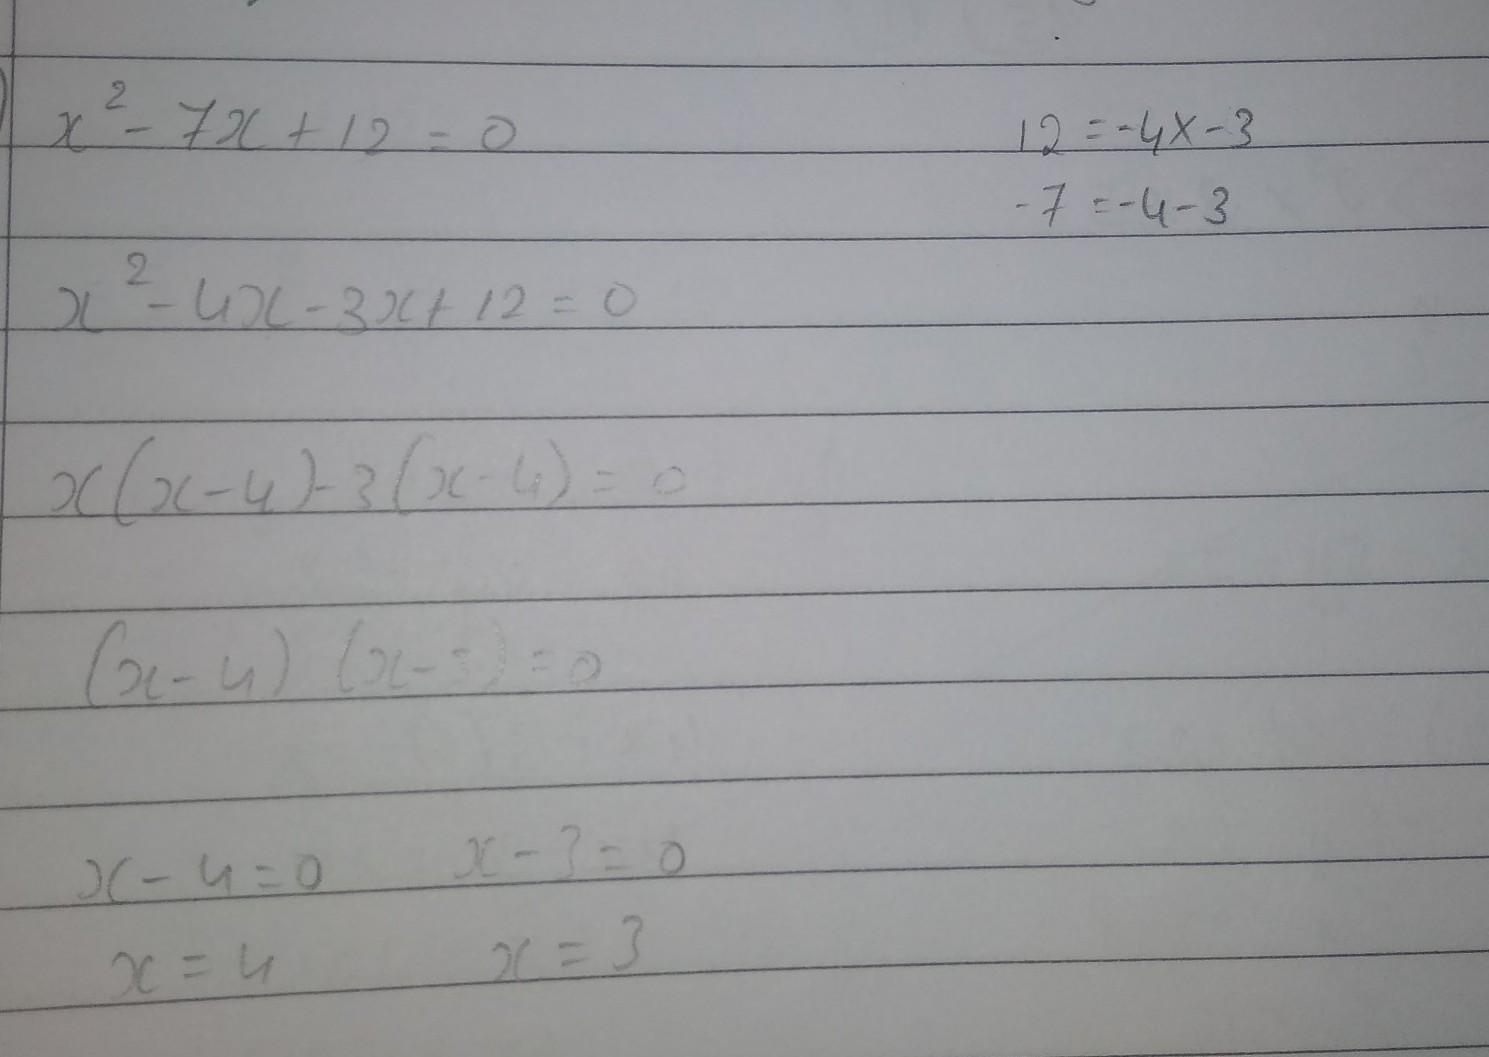 x² - 7x + 12 = 0
12 = -4 x -3
-7 = -4 - 3
x² - 4x - 3x + 12 = 0
x(x - 4) - 3(x - 4) = 0
(x - 4) (x - 3) = 0
x - 4 = 0 x - 3 = 0
x = 4 x = 3